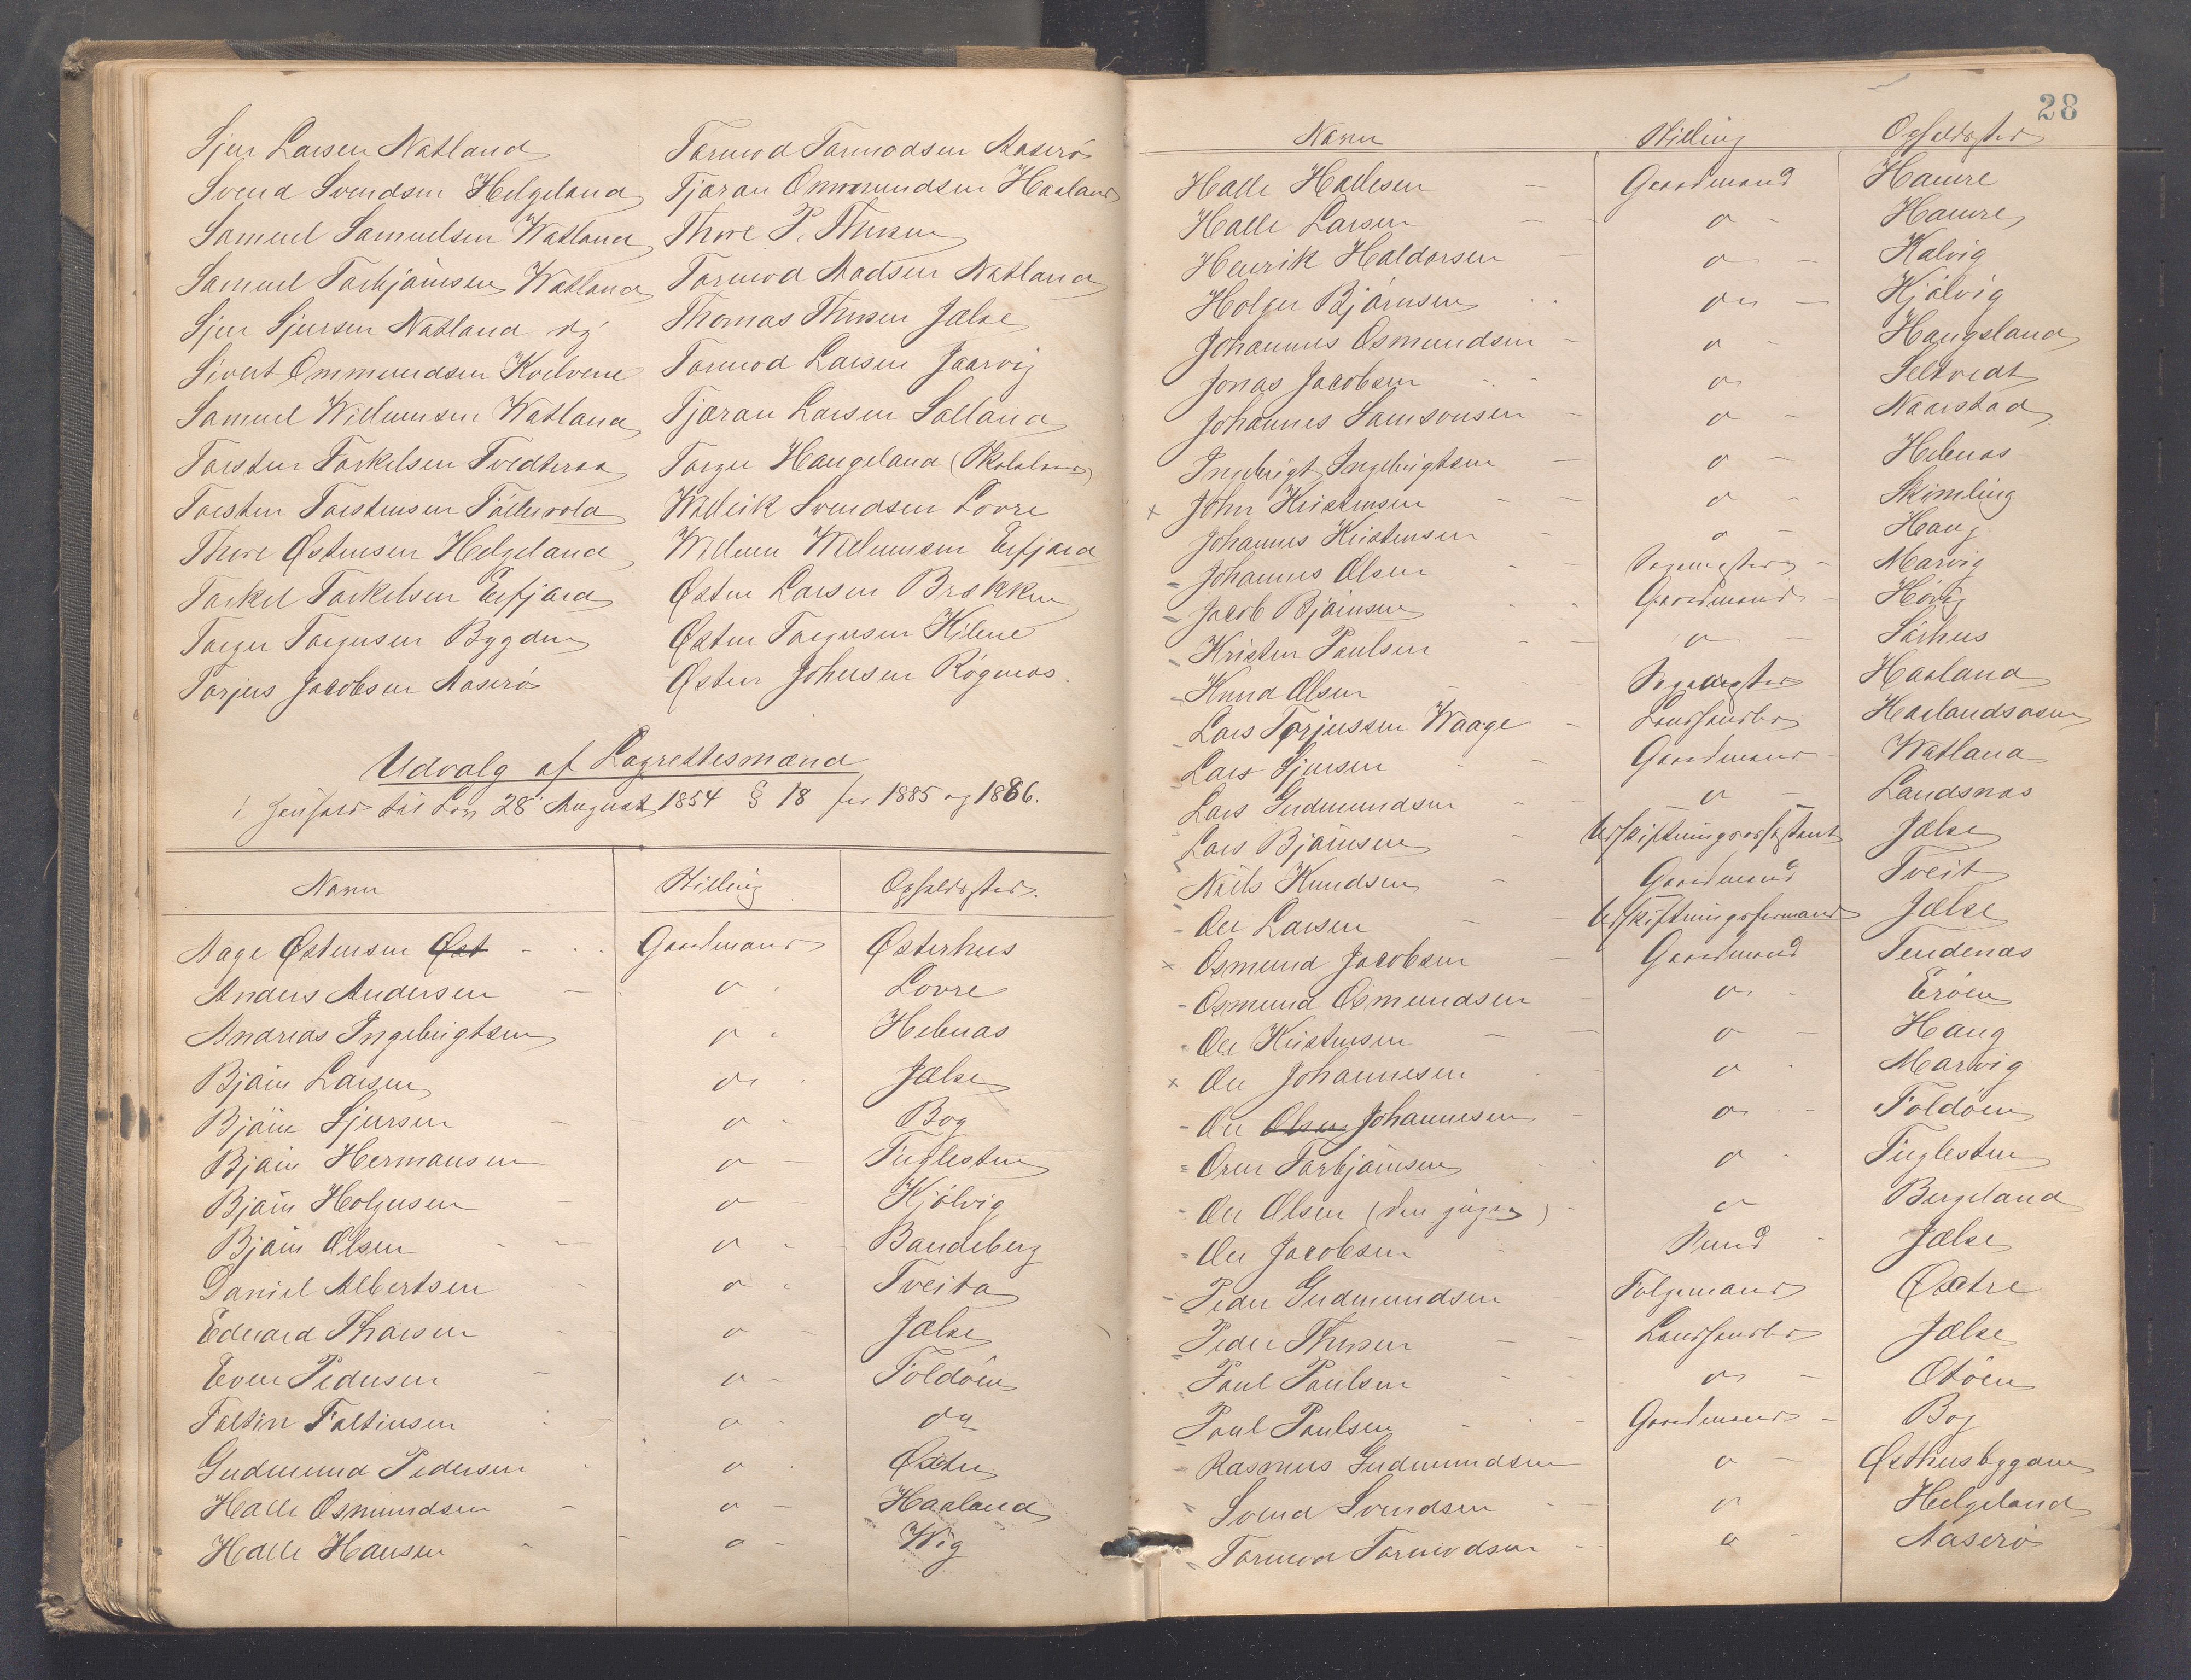 Sjur Larsen Natland
Svend Svendsen Helgeland
Samuel Samuelsen Watland
Samuel Torbjörnsen Watland
Sjur Sjursen Natland
Sivert Ommundsen Kvelvene
Samuel Willumsen Watland
Torsten Torkelsen Tvedteraa
Torsten Torstensen
Thore Østensen Helgeland
Torkel Torkelsen Erfjord
Torger Torgersen Bygden
Torjus Jacobsen Aaserö
Tormod Tormodsen Aaserö
Tjøran Ommundsen Haaland
Thore P. Thuesen
Tormod Aadsen Natland
Thomas Thuesen Jælse
Tormod Larsen Jaarvig
Tjøran Larsen Salland
Torger Haugeland
Wallerik Svendsen Lovre
Willum Willumsen Erfjord
Østen Larsen Brekken
Østen Torgersen Hilene
Østen Johnsen Røgenes.
Udvalg af Lagrettesmænd
i Henhold til Lov 28 August 1854 § 18 for 1885 og 1886.
Navn Stilling Opholdssted.
Aage Østensen Øst Gaardmand Østerhus
Anders Andersen do Lovre
Andreas Ingebrigtsen do Hebnes
Bjørn Larsen do Jælse
Bjørn Sjursen do Bog
Bjørn Hermansen do Fuglesten
Bjørn Holgersen do Kjölvig
Bjørn Olsen do Bandeberg
Daniel Albertsen do Tveita
Edvard Thorsen do Jælse
Even Pedersen do Foldöen
Faltin Faltinsen do do
Gudmund Pedersen do Østre
Halle Osmundsen do Haaland
Halle Hansen do Wig
28
Navn Stilling Opholdssted
Halle Hallesen Gaardmand Hamre
Halle Larsen do Hamre
Henrik Haldorsen do Kalvig
Holger Bjørnsen do Kjölvig
Johannes Osmundsen do Haugsland
Jonas Jacobsen do Seltvedt
Johannes Samsonsen do Naarstad
Ingebrigt Ingebrigtsen do Hebnes
x John Kristensen do Skimling
Johannes Kristensen do Haug
- Johannes Olsen Marvig
- Jacob Bjørnsen Gaardmand Hövig
- Kristen Paulsen do Sörhus
- Knud Olsen Haaland
- Lars Torjussen Waage Landhandler Haalandsosen
- Lars Sjursen Gaardmand Watland
- Lars Gudmundsen do Landsnes
- Lars Bjørnsen Udskiftningsassistent Jælse
- Niels Knudsen Gaardmand Tveit
- Ole Larsen Udskiftningsformand Jælse
x Osmund Jacobsen Gaardmand Tendenes
- Osmund Osmundsen do Eröen
- Ole Kristensen do Haug
x Ole Johannesen do Marvig
- Ole Olsen Johannesen do Foldöen
- Orm Torbjørnsen do Fuglesten
- Ole Olsen (den yngre) do Bergeland
- Ole Jacobsen Jælse
- Peder Gudmundsen Folgemand Østre
- Peder Thuesen Landhandler Jælse
- Poul Poulsen do Otöen
- Poul Poulsen Gaardmand Bog
- Rasmus Gudmundsen do Østhusbygden
- Svend Svendsen do Helgeland
- Tormod Tormodsen do Aaserö